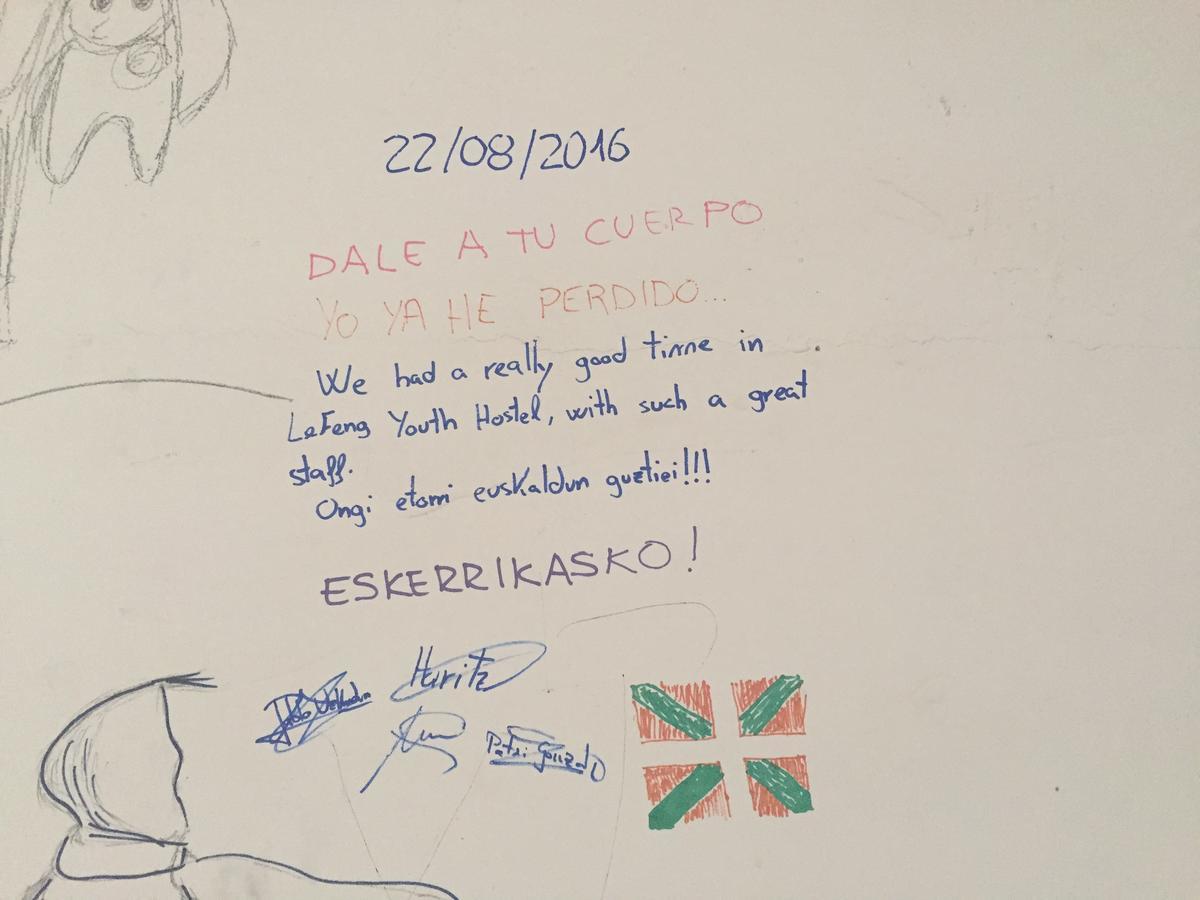 22/08/2016
DALE A TU CUERPO
YO YA HE PERDIDO...
We had a really good time in
LeFeng Youth Hostel, with such a great
staff.
Ongi etorri euskaldun guztiei!!!
ESKERRIKASKO!
Haritz